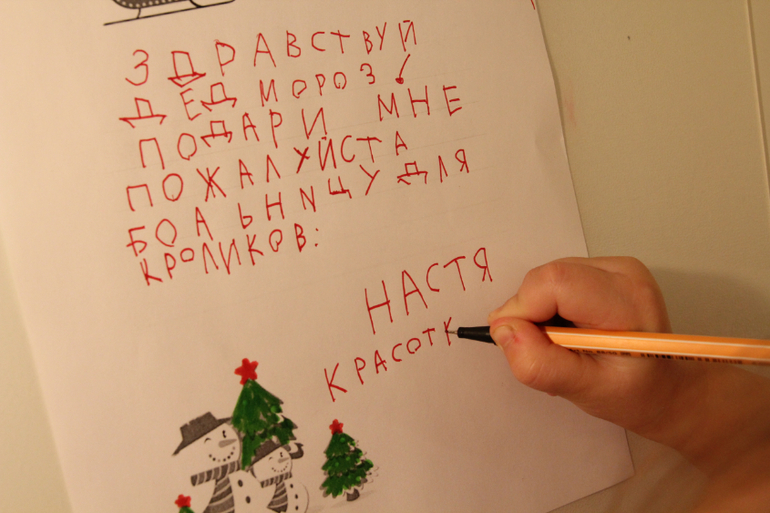 ЗДРАВСТВУЙ
ДЕД МОРОЗ!
ПОДАРИ МНЕ
ПОЖАЛУЙСТА
БОЛЬНИЦУ ДЛЯ
КРОЛИКОВ:
НАСТЯ
КРАСОТК